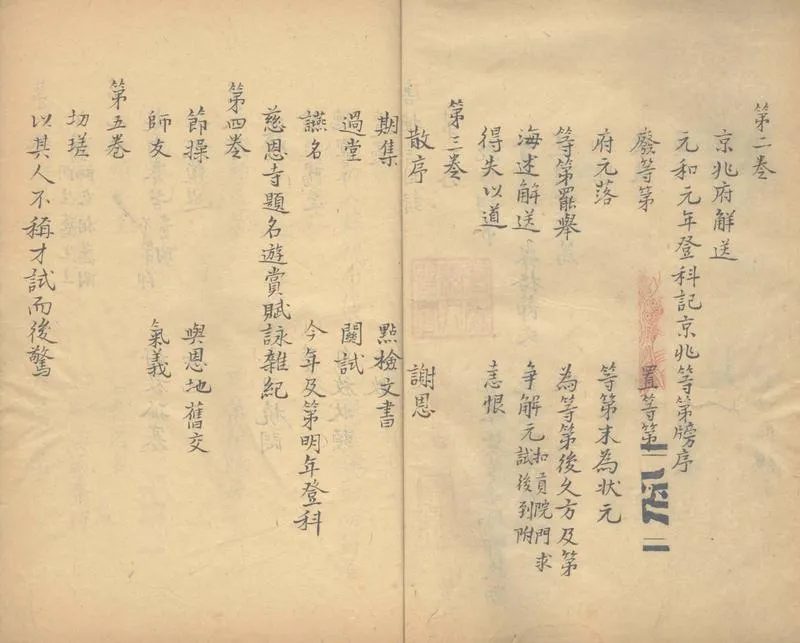 第二卷
京兆府解送
元和元年登科記京兆等第牓序
廢等第　置等第
府元落　等第末為狀元
等第罷舉　為等第後久方及第
海述解送　爭解元扣貢院門求試後到附
得失以道　恚恨
第三卷
散序　謝恩
期集　點檢文書
過堂　關試
讌名　今年及第明年登科
慈恩寺題名遊賞賦詠雜紀
第四卷
節操　與恩地舊交
師友　氣義
第五卷
切磋
以其人不稱才試而後驚